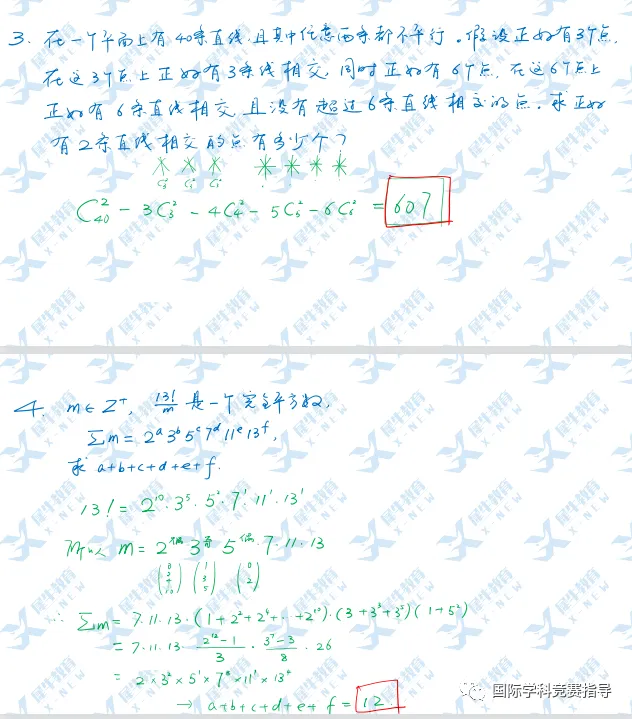 3. 在一个平面上有40条直线,且其中任意两条都不平行。假设正好有3个点,
在这3个点上正好有3条线相交,同时正好有6个点,在这6个点上
正好有6条直线相交,且没有超过6条直线相交的点。求正好
有2条直线相交的点有多少个?
C₃² C₃² C₃²
C₄₀² - 3C₃² - 4C₄² - 5C₅² - 6C₆² = 607
4. m∈Z⁺, 13!/m 是一个完全平方数,
∑m = 2ᵃ3ᵇ5ᶜ7ᵈ11ᵉ13ᶠ,
求 a+b+c+d+e+f.
13! = 2¹⁰·3⁵·5²·7¹·11¹·13¹
所以 m = 2^偶 3^奇 5^偶·7·11·13
(0 2 4 ⋮ 10) (1 3 5) (0 2)
∴ ∑m = 7·11·13·(1+2²+2⁴+…+2¹⁰)·(3+3³+3⁵)(1+5²)
= 7·11·13·(2¹²-1)/3·(3⁷-3)/8·26
= 2×3²×5¹×7⁴×11¹×13⁴
→ a+b+c+d+e+f = 12
国际学科竞赛指导
犀牛教育
X-NEW